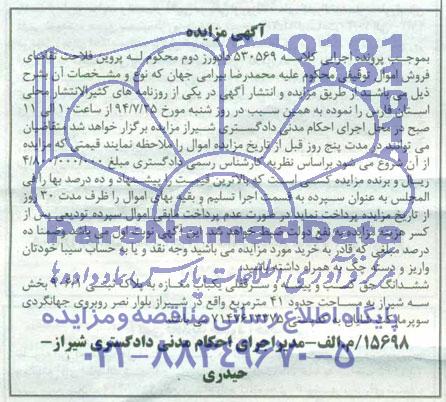 آگهی مزایده
بموجب پرونده اجرایی کلاسه ۵۳۰۵۶۹ دادورز دوم محکوم له پروین فلاحت تقاضای
فروش اموال توقیفی محکوم علیه محمدرضا بیرامی جهان که نوع و مشخصات آن بشرح
ذیل می باشد از طریق مزایده و انتشار آگهی در یکی از روزنامه های کثیرالانتشار محلی
استان فارس را نموده به همین سبب در روز شنبه مورخ ۹۴/۷/۲۵ از ساعت ۱۰ الی ۱۱
صبح در محل اجرای احکام مدنی دادگستری شیراز مزایده برگزار خواهد شد متقاضیان
می توانند در مدت پنج روز قبل از تاریخ مزایده اموال را ملاحظه نمایند قیمتی که مزایده
از آن شروع می شود براساس نظریه کارشناس رسمی دادگستری مبلغ
ریال و برنده مزایده کسی است که بالاترین قیمت را پیشنهاد و ده درصد بها را فی
المجلس به عنوان سپرده به قسمت اجرا تسلیم و بقیه بهای اموال را ظرف مدت ۳۰ روز
از تاریخ مزایده پرداخت نماید در صورت عدم پرداخت مابقی اموال سپرده تودیعی پس از
کسر هزینه مزایده به نفع دولت ضبط خواهد شد این آگهی نوبت اول می باشد ضمنا ده
درصد مبلغی که قادر به خرید مورد مزایده می باشید وجه نقد و یا به حساب سیبا خودتان
واریز و دسته چک به همراه داشته باشید.
ششدانگ حق کسب و پیشه و سرقفلی یکباب مغازه به پلاک ثبتی بخش
سه شیراز به مساحت حدود ۴۱ مترمربع واقع در شیراز بلوار نصر روبروی جهانگردی
سوپرمارکت به کدپستی می باشد
۱۵۶۹۸/م.الف-مدیراجرای احکام مدنی دادگستری شیراز-
حیدری
ParsNamadData
گروه فن آوری اطلاعات پارس نماد داده ها
پایگاه اطلاع رسانی مناقصه و مزایده
۰۲۱-۸۸۳۴۹۶۷۰-۵